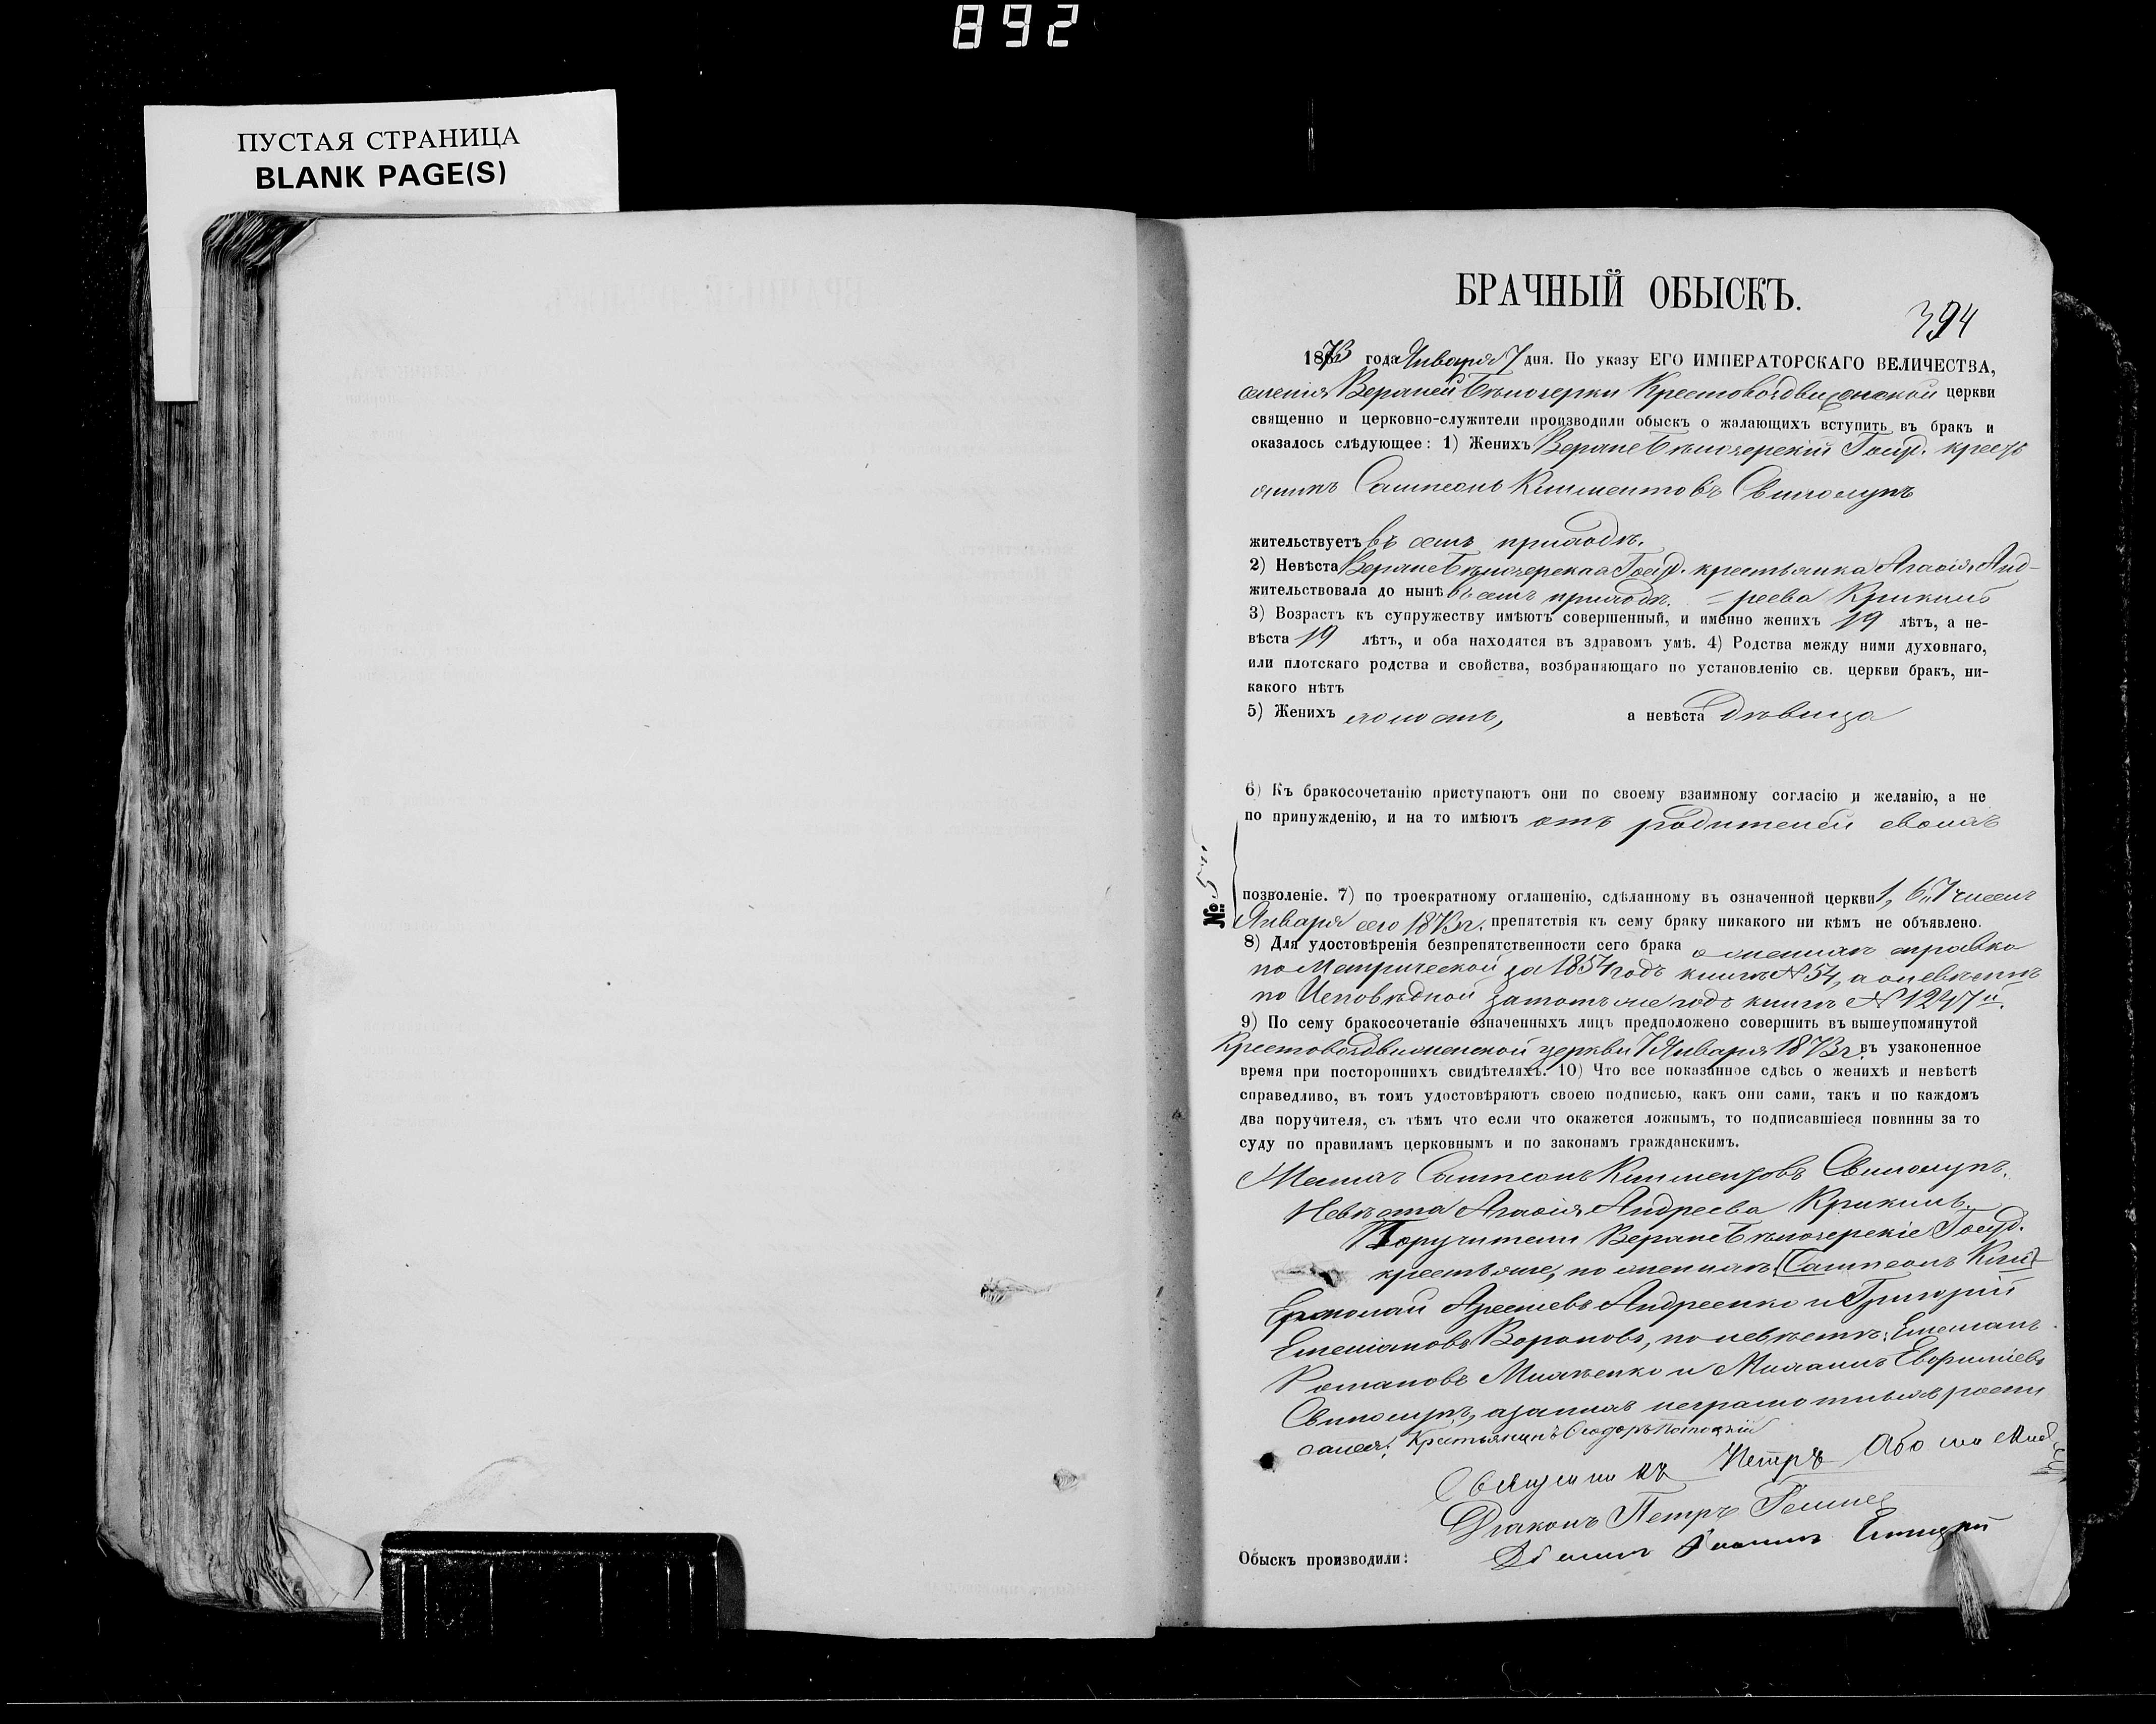 892
ПУСТАЯ СТРАНИЦА
BLANK PAGE(S)
БРАЧНЫЙ ОБЫСКЪ.
394
1873 года Января 7 дня. По указу ЕГО ИМПЕРАТОРСКАГО ВЕЛИЧЕСТВА,
селенія Верхней Бѣлозерки Крестовоздвиженской церкви
священно и церковно-служители производили обыскъ о жалающихъ вступить въ бракъ и
оказалось слѣдующее: 1) Женихъ Верхне Бѣлозерскій Госуд. крест
янинъ Сампсонъ Климентовъ Свинолупъ
жительствуетъ въ семъ приходѣ.
2) Невѣста Верхне Бѣлозерская Госуд. крестьянка Агафія Анд-
жительствовала до нынѣ въ семъ приходѣ. = реева Крикинъ
3) Возрастъ къ супружеству имѣютъ совершенный, и именно женихъ 19 лѣтъ, а не-
вѣста 19 лѣтъ, и оба находятся въ здравомъ умѣ. 4) Родства между ними духовнаго,
или плотскаго родства и свойства, возбраняющаго по установленію св. церкви бракъ, ни-
какого нѣтъ
5) Женихъ холостъ, а невѣста дѣвица
6) Къ бракосочетанію приступаютъ они по своему взаимному согласію и желанію, а не
по принужденію, и на то имѣютъ отъ родителей своихъ
№ 5й
позволеніе. 7) по троекратному оглашенію, сдѣланному въ означенной церкви 1, 6, 7 чиселъ
Января сего 1873 г. препятствія къ сему браку никакого ни кѣмъ не объявлено.
8) Для удостовѣренія безпрепятственности сего брака о женихѣ справка
по Метрической за 1854 годъ книгѣ № 54, а о невѣстѣ
по Исповѣдной за тотъ же годъ книгѣ № 1247й.
9) По сему бракосочетаніе означенныхъ лицъ предположено совершить въ вышеупомянутой
Крестовоздвиженской церкви 7 Января 1873 г. въ узаконенное
время при постороннихъ свидѣтеляхъ. 10) Что все показанное сдѣсь о женихѣ и невѣстѣ
справедливо, въ томъ удостовѣряютъ своею подписью, какъ они сами, такъ и по каждомъ
два поручителя, съ тѣмъ что если что окажется ложнымъ, то подписавшіеся повинны за то
суду по правиламъ церковнымъ и по законамъ гражданскимъ.
Женихъ Сампсонъ Климентовъ Свинолупъ.
Невѣста Агафія Андреева Крикинъ.
Поручители Верхне Бѣлозерскіе Госуд.
крестьяне, по женихѣ: Сампсонъ Кли
Ермолай Андреенко и Григорій
Емеліановъ Вороновъ, по невѣстѣ: Емеліанъ
Романовъ и
Свинолупъ, а за нихъ неграмотныхъ роспи
сался: Крестьянинъ Феодоръ
Священникъ Петръ
Діаконъ Петръ
Обыскъ производили: